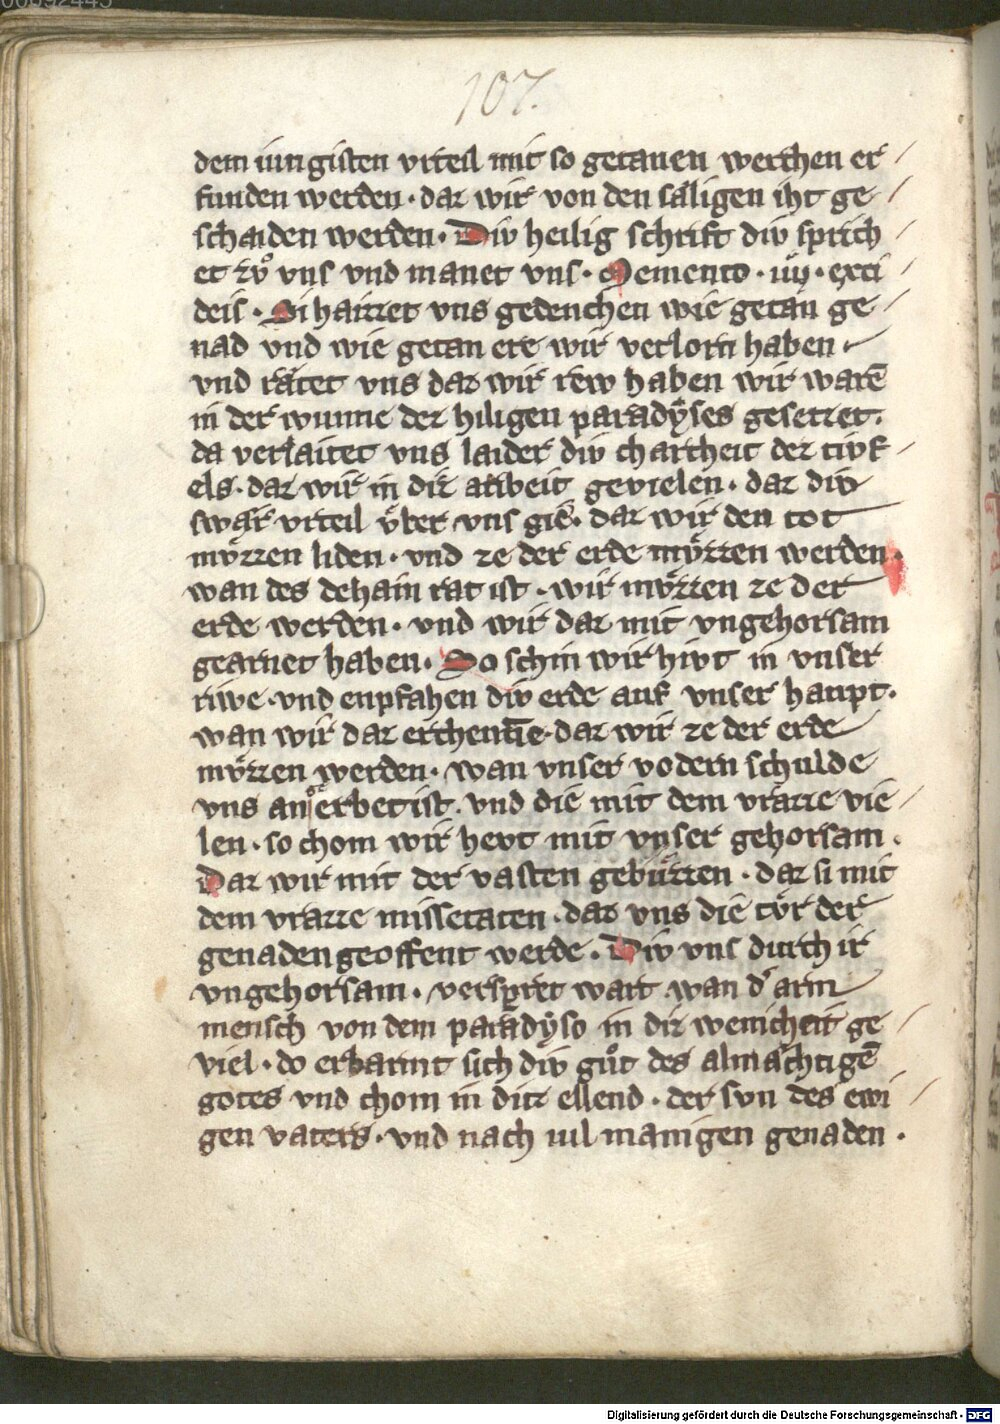 107.
dem iungisten vrteil mit so getanen werchen er
funden werden · daz wir von den sæligen iht ge
schaiden werden · Div heilig schrift div sprich
et zvͦ vns vnd manet vns · Memento · exci
deis · Si haizzet vns gedenchen wie getan ge
nad vnd wie getan ere wir verlorn haben
vnd rætet vns daz wir rew haben wir warē
in der wunne dez hiligen paradẏses gesetzet ·
da verlaitet vns laider div chartheit dez tivf
els · daz wir in dir aribeit gevielen · daz div
swær vrteil vͤber vns gie · daz wir den tot
mvͤzzen liden · vnd ze der erde mvͤzzen werden ·
wan des dehain rat ist · wir mvͤzzen ze der
erde werden · vnd wir daz mit vngehorsam
gearnet haben · So schin wir hivt in vnser
riwe · vnd enpfahen div erde auf vnser haupt ·
wan wir daz erchennē · daz wir ze der erde
mvͤzzen werden · wan vnser vodern schulde
vns an erbet ist · vnd die mit dem vrazze vie
len · so chom wir hevt mit vnser gehorsam ·
Daz wir mit der vasten gebuͤzzen · daz si mit
dem vrazze missetaten · daz vns die tvͤr der
genaden geoffent werde · Div vns durch ir
vngehorsam · verspret wart wan d͛ arm
mensch von dem paradẏso in dir wenicheit ge
viel · do erbarmt sich div guͦt des almæchtigē
gotes vnd chom in ditz ellend · der svn des ewi
gen vaters · vnd nach uil manigen genaden ·
Digitalisierung gefördert durch die Deutsche Forschungsgemeinschaft - DFG